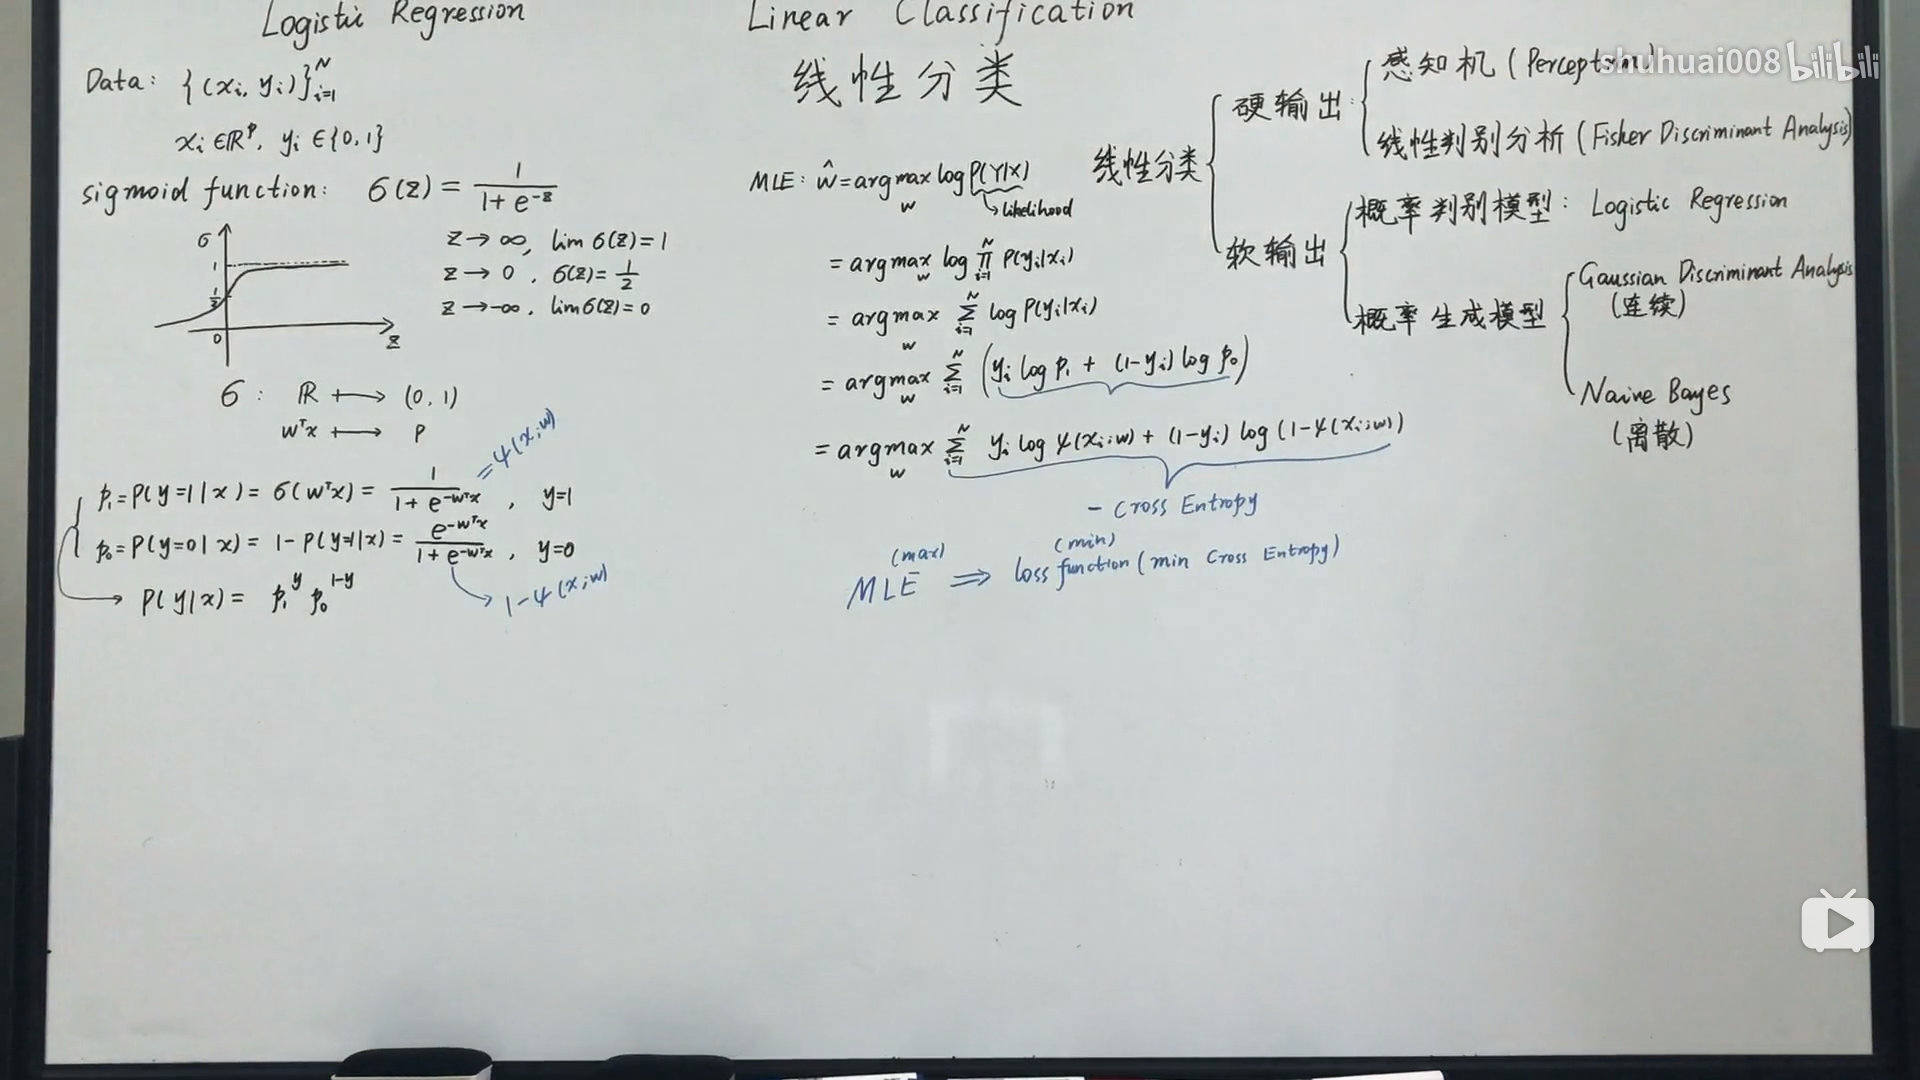 Logistic Regression
Data: {(xᵢ, yᵢ)}ᵢ₌₁ᴺ
xᵢ ∈ ℝᵖ, yᵢ ∈ {0,1}
sigmoid function: σ(z) = 1 / (1 + e^{-z})
z → ∞, lim σ(z) = 1
z → 0, σ(z) = 1/2
z → -∞, lim σ(z) = 0
σ
1
1/2
0
z
σ: ℝ ⟼ (0,1)
wᵀx ⟼ p
p₁ = P(y=1|x) = σ(wᵀx) = 1 / (1 + e^{-wᵀx}), y=1
= ψ(x;w)
p₀ = P(y=0|x) = 1 - P(y=1|x) = e^{-wᵀx} / (1 + e^{-wᵀx}), y=0
1 - ψ(x;w)
→ P(y|x) = p₁^y p₀^{1-y}
Linear Classification
线性分类
MLE: ŵ = argmax_w log P(Y|X)
likelihood
= argmax_w log ∏ᵢ₌₁ᴺ P(yᵢ|xᵢ)
= argmax_w ∑ᵢ₌₁ᴺ log P(yᵢ|xᵢ)
= argmax_w ∑ᵢ₌₁ᴺ (yᵢ log p₁ + (1-yᵢ) log p₀)
= argmax_w ∑ᵢ₌₁ᴺ yᵢ log ψ(xᵢ;w) + (1-yᵢ) log (1-ψ(xᵢ;w))
- Cross Entropy
(max) (min)
MLE ⟹ loss function (min Cross Entropy)
线性分类
硬输出:
感知机 (Perceptron)
线性判别分析 (Fisher Discriminant Analysis)
软输出
概率判别模型: Logistic Regression
概率生成模型
Gaussian Discriminant Analysis
(连续)
Naive Bayes
(离散)
shuhuai008 bilibili